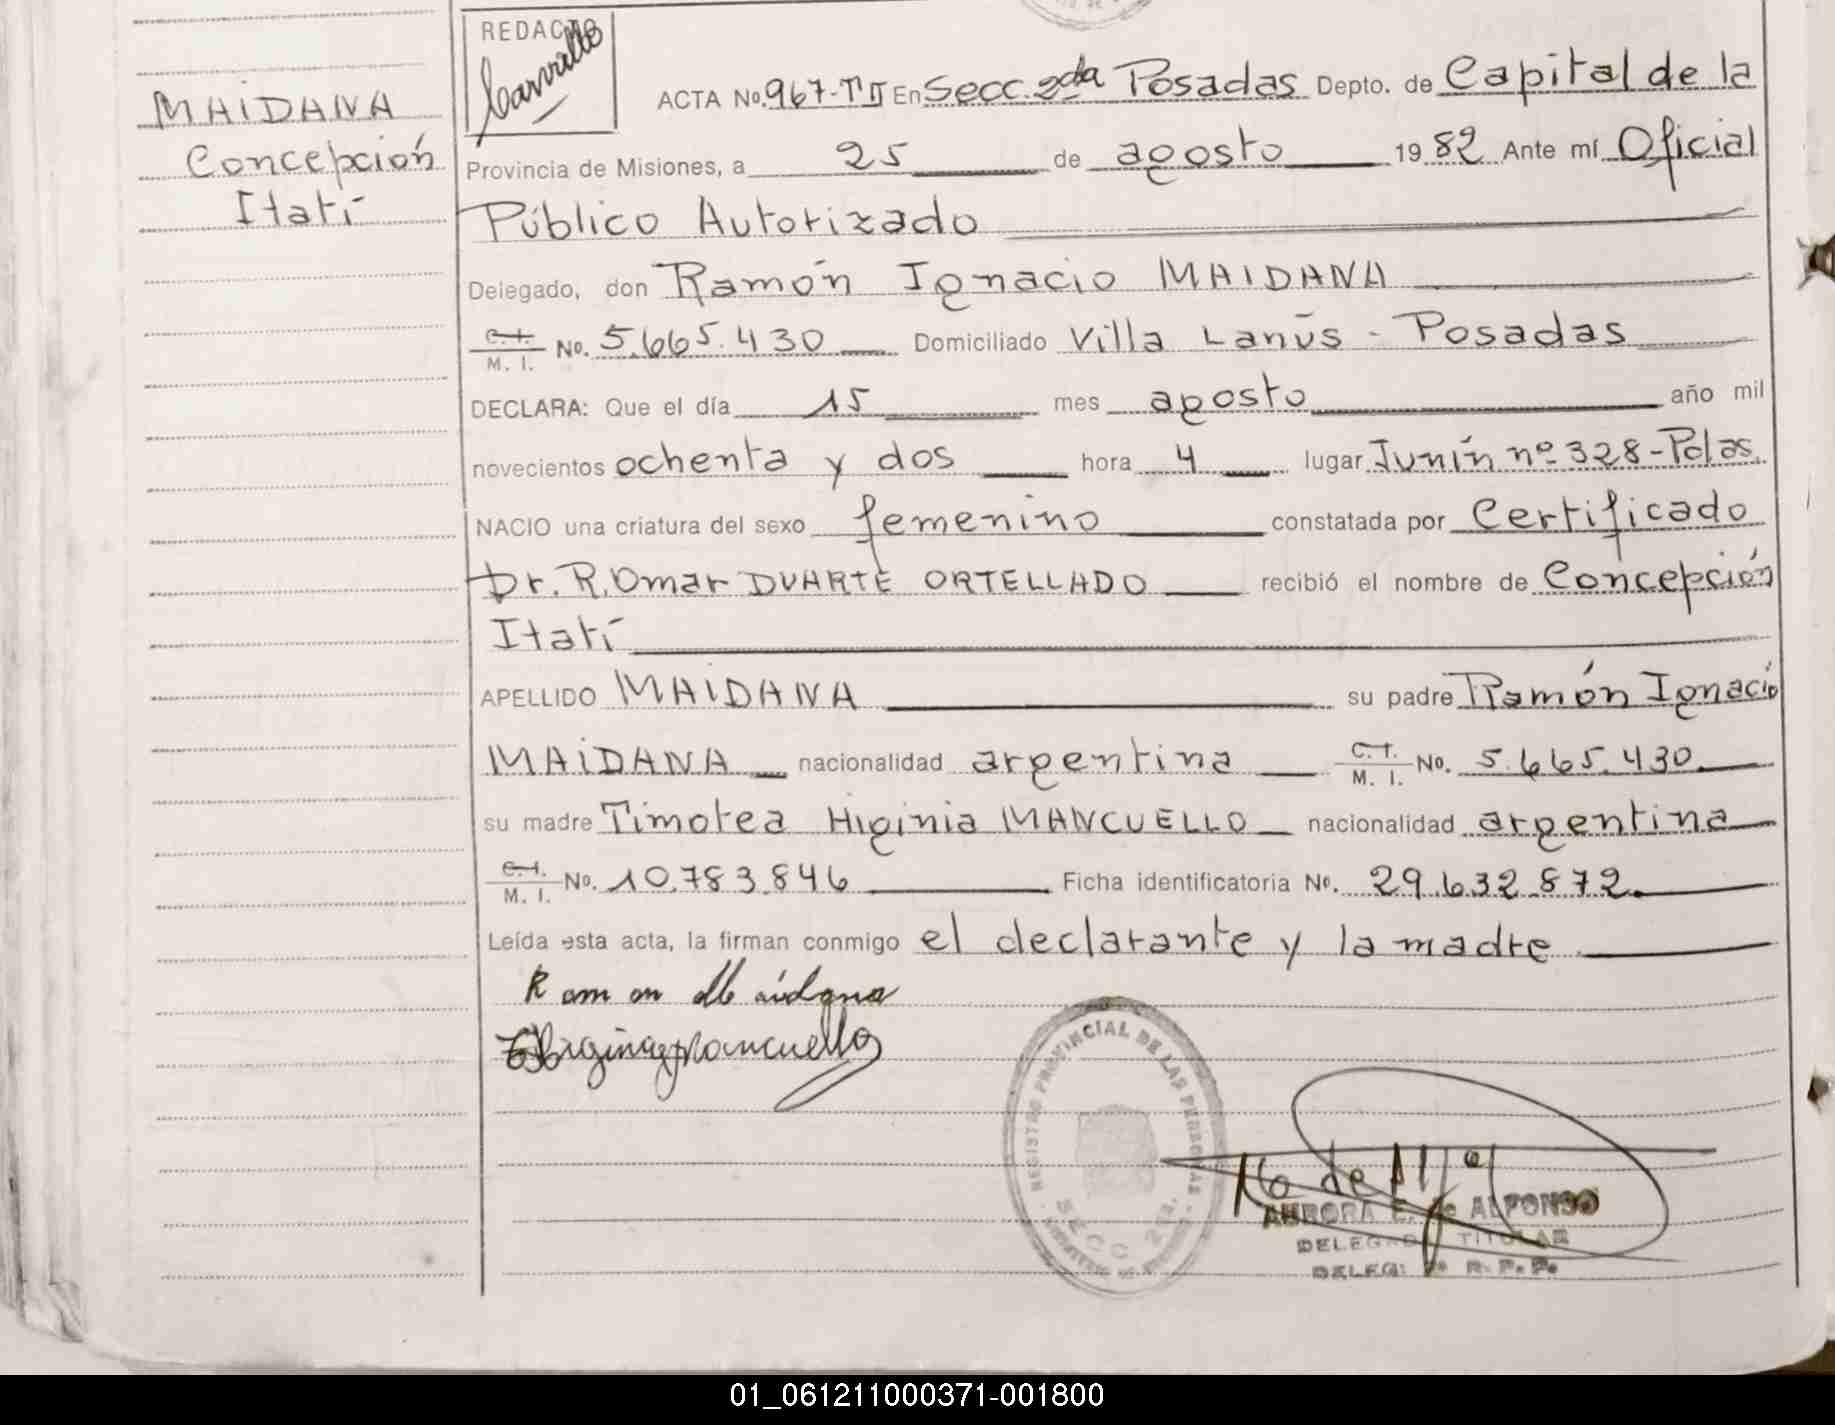 MAIDANA
Concepción
Itatí
REDACTO
Carvallo
ACTA No. 967-TII En Secc. 2da Posadas Depto. de Capital de la
Provincia de Misiones, a 25 de agosto 1982 Ante mí Oficial
Público Autorizado
Delegado, don Ramón Ignacio MAIDANA
C.I. M. I. No. 5.665.430 Domiciliado Villa Lanús - Posadas
DECLARA: Que el día 15 mes agosto año mil
novecientos ochenta y dos hora 4 lugar Junín nº 328-Pdas.
NACIO una criatura del sexo femenino constatada por Certificado
Dr. R. Omar DUARTE ORTELLADO recibió el nombre de Concepción
Itatí
APELLIDO MAIDANA su padre Ramón Ignacio
MAIDANA nacionalidad argentina C.I. M. I. No. 5.665.430
su madre Timotea Higinia MANCUELLO nacionalidad argentina
C.I. M. I. No. 10.783.846 Ficha identificatoria No. 29.632.872
Leída esta acta, la firman conmigo el declarante y la madre
Ramon Maidana
Higinia Mancuello
REGISTRO PROVINCIAL DE LAS PERSONAS
SECC 2da.
AURORA E. de ALFONSO
DELEGADA TITULAR
DELEG. R. P. P.
01_061211000371-001800